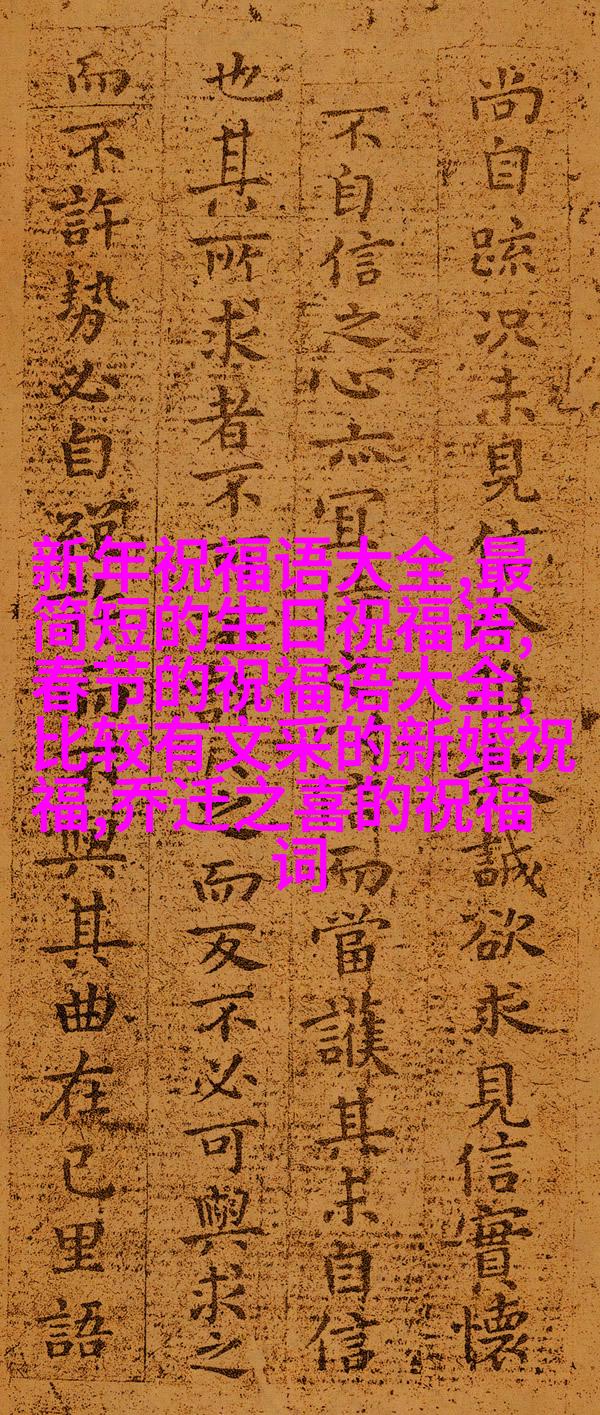 尚自踈况未見誠欲求見信實懷
不自信之心亦宜而當護其未自信
也其所求者不之而反不必可與求之
而不許勢必自與其曲在己里語
新年祝福语大全,最
简短的生日祝福语,
春节的祝福语大全,
比较有文采的新婚祝
福,乔迁之喜的祝福
词